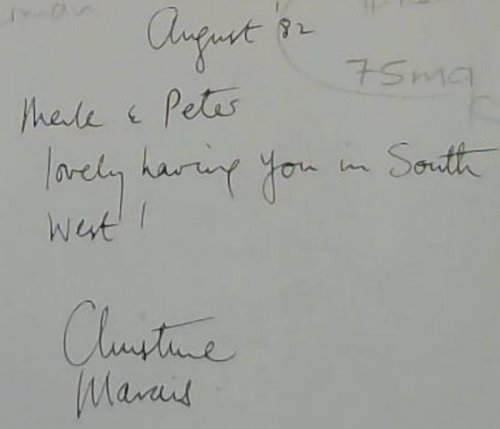 August '82
75ma
Merle & Peter
lovely having you in South
West!
Christine
Marais